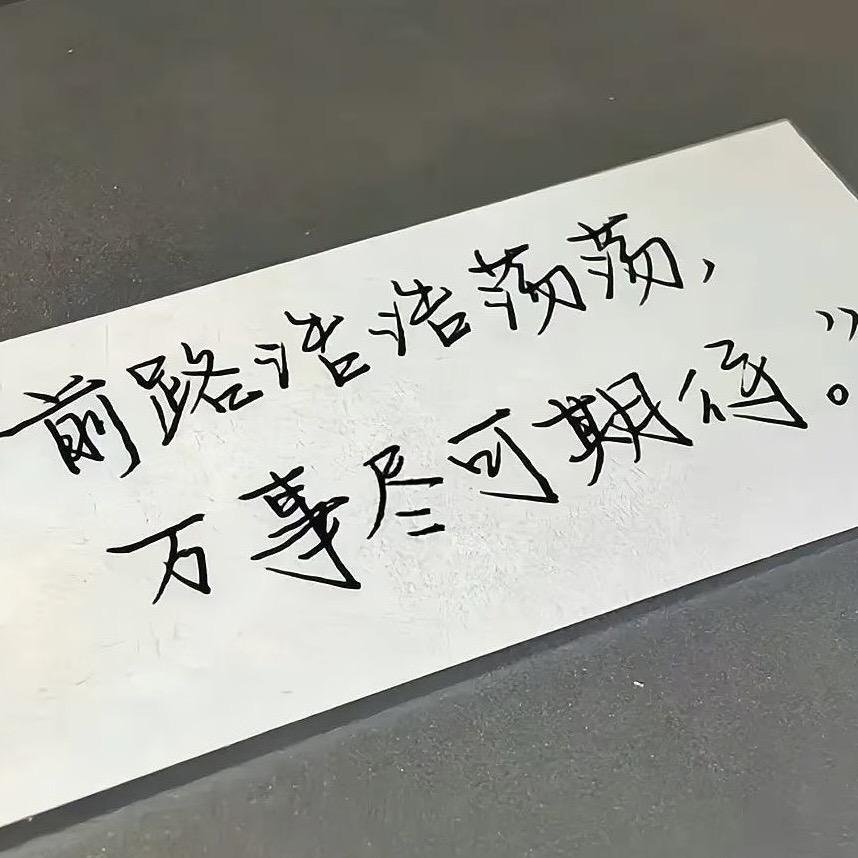 前路浩浩荡荡，
万事尽可期待。”